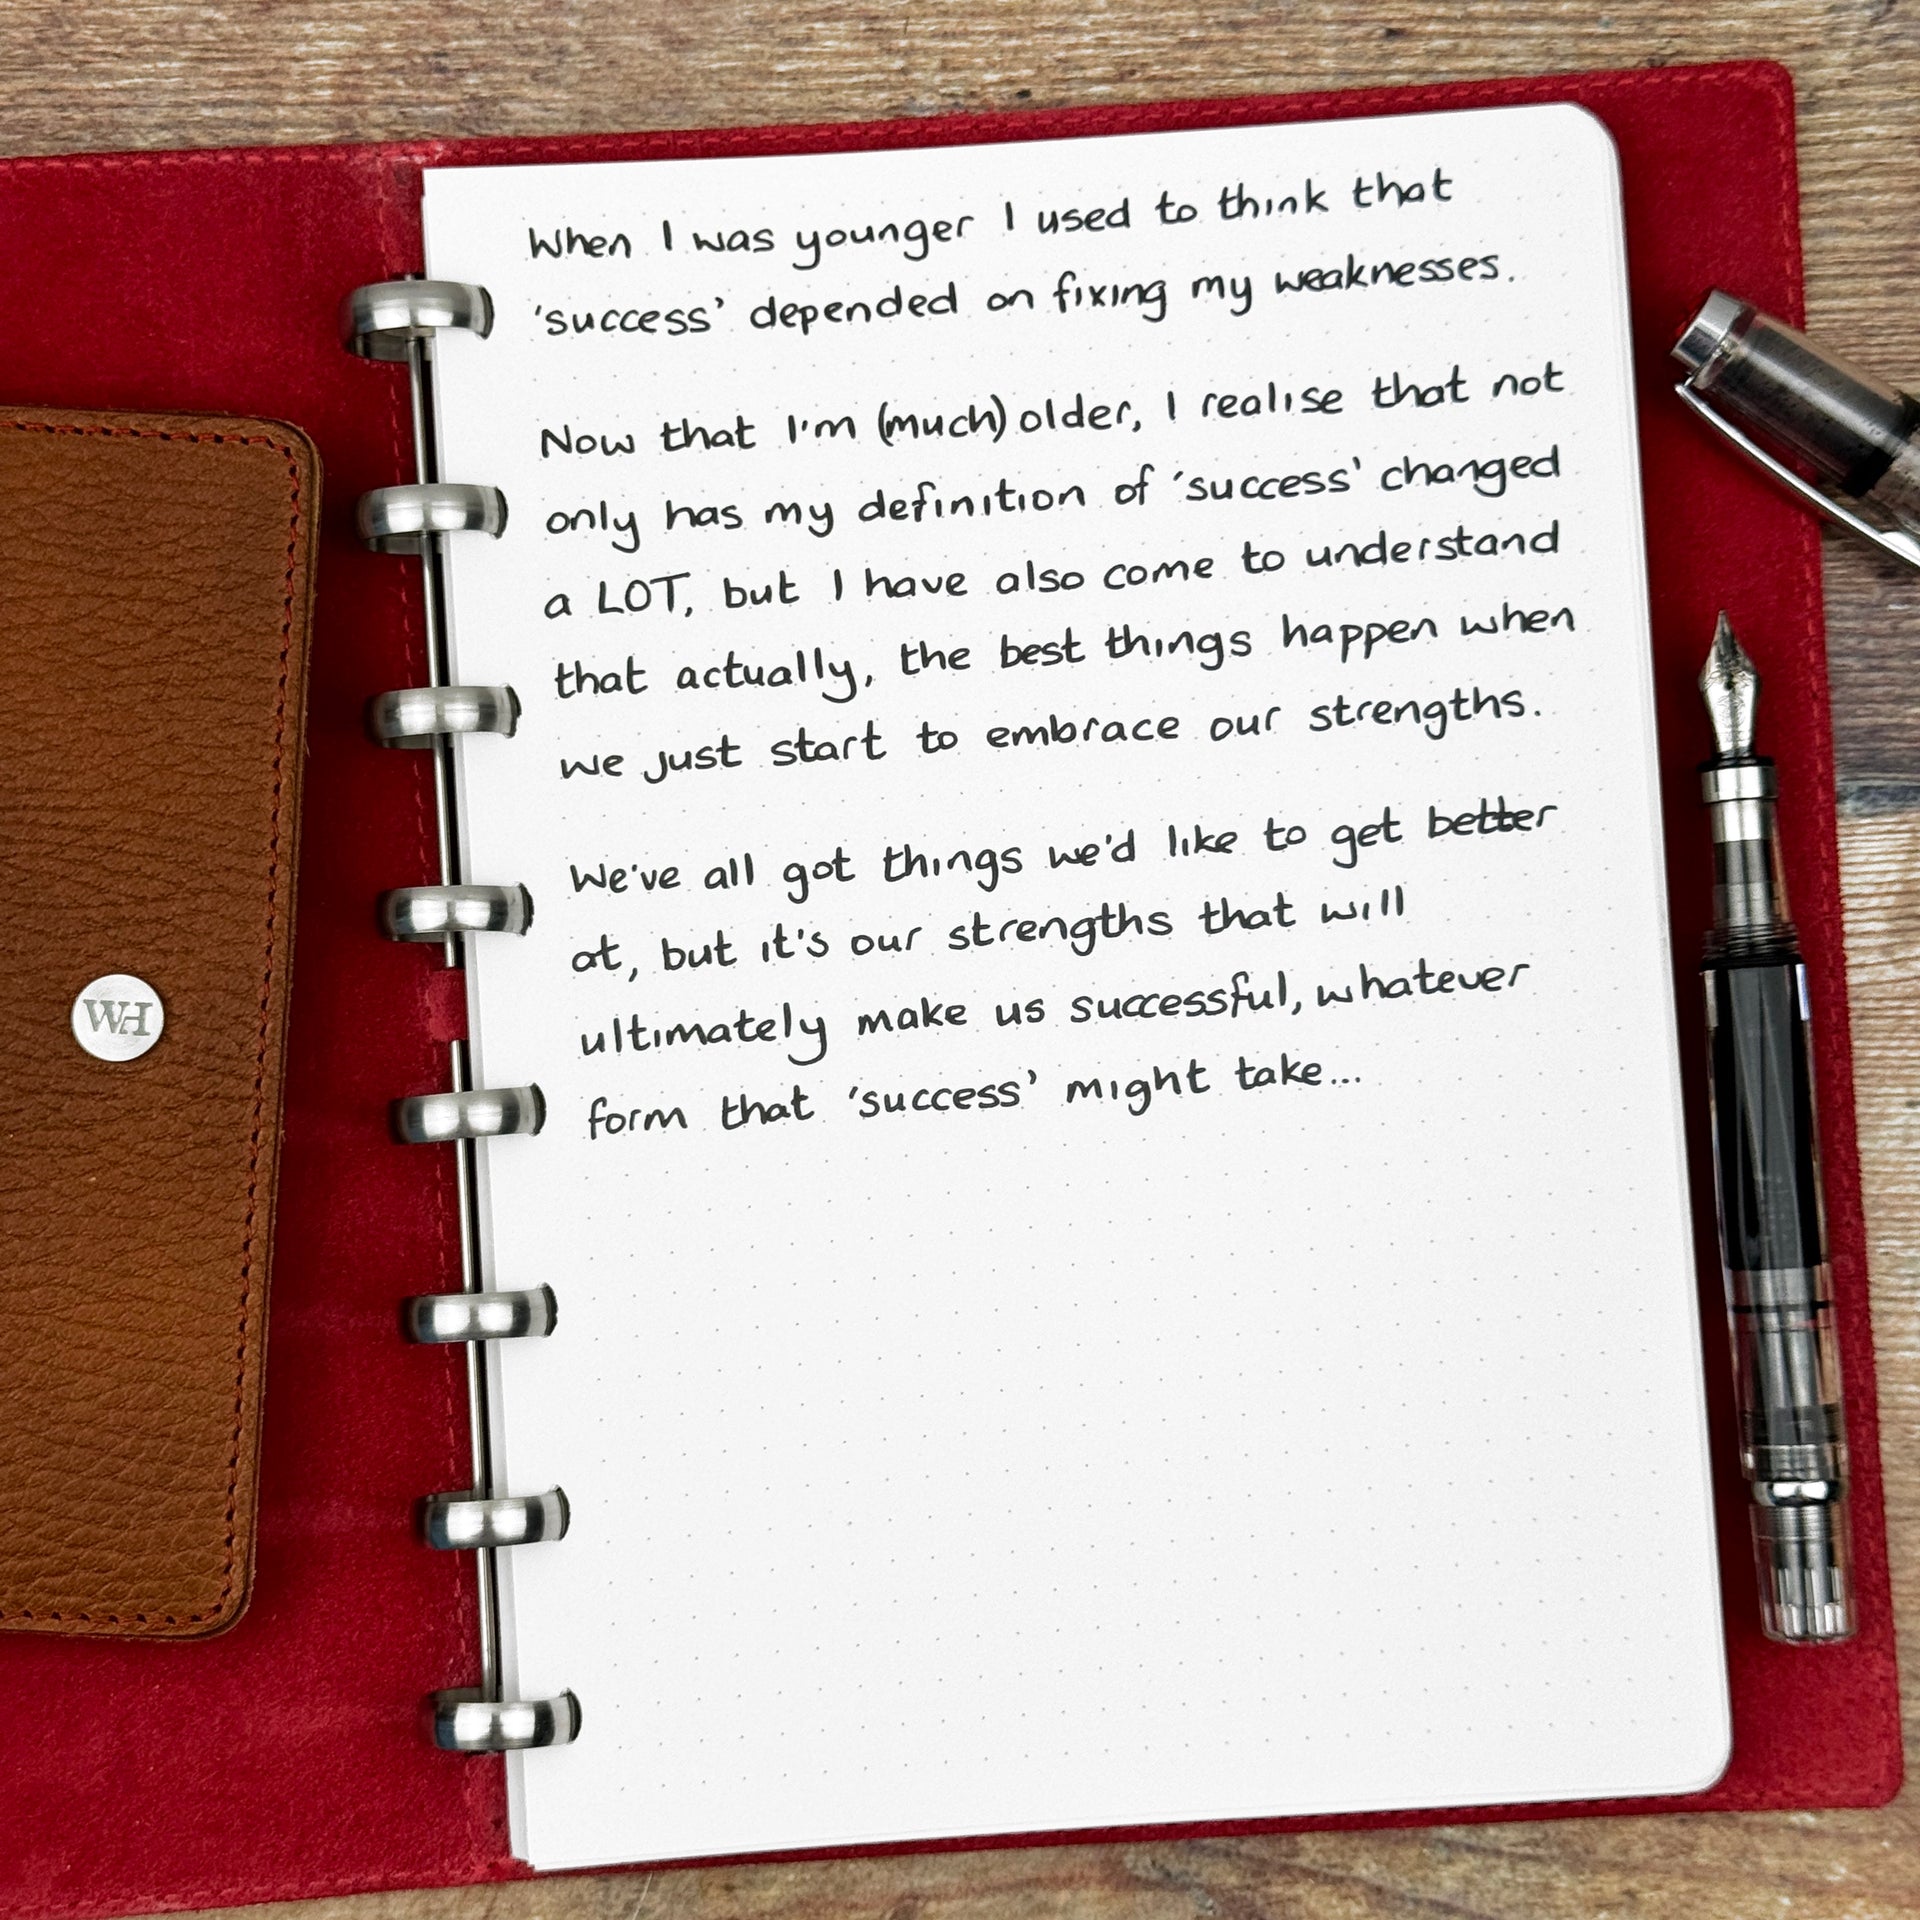 When I was younger I used to think that
'success' depended on fixing my weaknesses.
Now that I'm (much) older, I realise that not
only has my definition of 'success' changed
a LOT, but I have also come to understand
that actually, the best things happen when
we just start to embrace our strengths.
We've all got things we'd like to get better
at, but it's our strengths that will
ultimately make us successful, whatever
form that 'success' might take...
WH